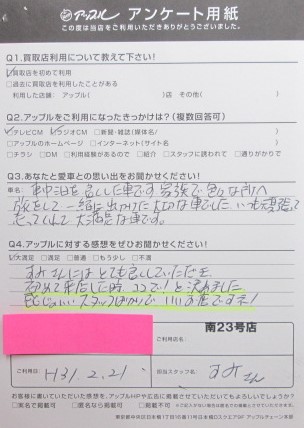 アップル アンケート用紙
この度は当店をご利用いただきありがとうございました。
Q1.買取店利用について教えて下さい!
買取店を初めて利用
□過去に買取店を利用したことがある
利用した店舗: アップル( )店 その他( )
Q2.アップルをご利用になったきっかけは?(複数回答可)
テレビCM ラジオCM □新聞・雑誌(媒体名/ )
□アップルのホームページ □インターネット(サイト名 )
□チラシ □DM □利用経験があるので □紹介 □スタッフに誘われて □通りがかりで
Q3.あなたと愛車との思い出をお聞かせください!
車名:
車中泊を
一緒に出かけた大切な車でした
大満足な車です。
Q4.アップルに対する感想をぜひお聞かせください!
大満足 □満足 □普通 □もう少し □不満
すみさんにはとても良くしていただき
初めて来店した時、ココで!と決めました
感じの良いスタッフばかりでいいお店ですネ!
ご利用店名:
南23号店
ご利用日:
H31.2.21
担当スタッフ名:
すみさん
お客様に書いていただいた感想を、アップルHPや広告に掲載させていただいてもよろしいでしょうか?
□実名と掲載可 □匿名なら掲載可 □掲載不可